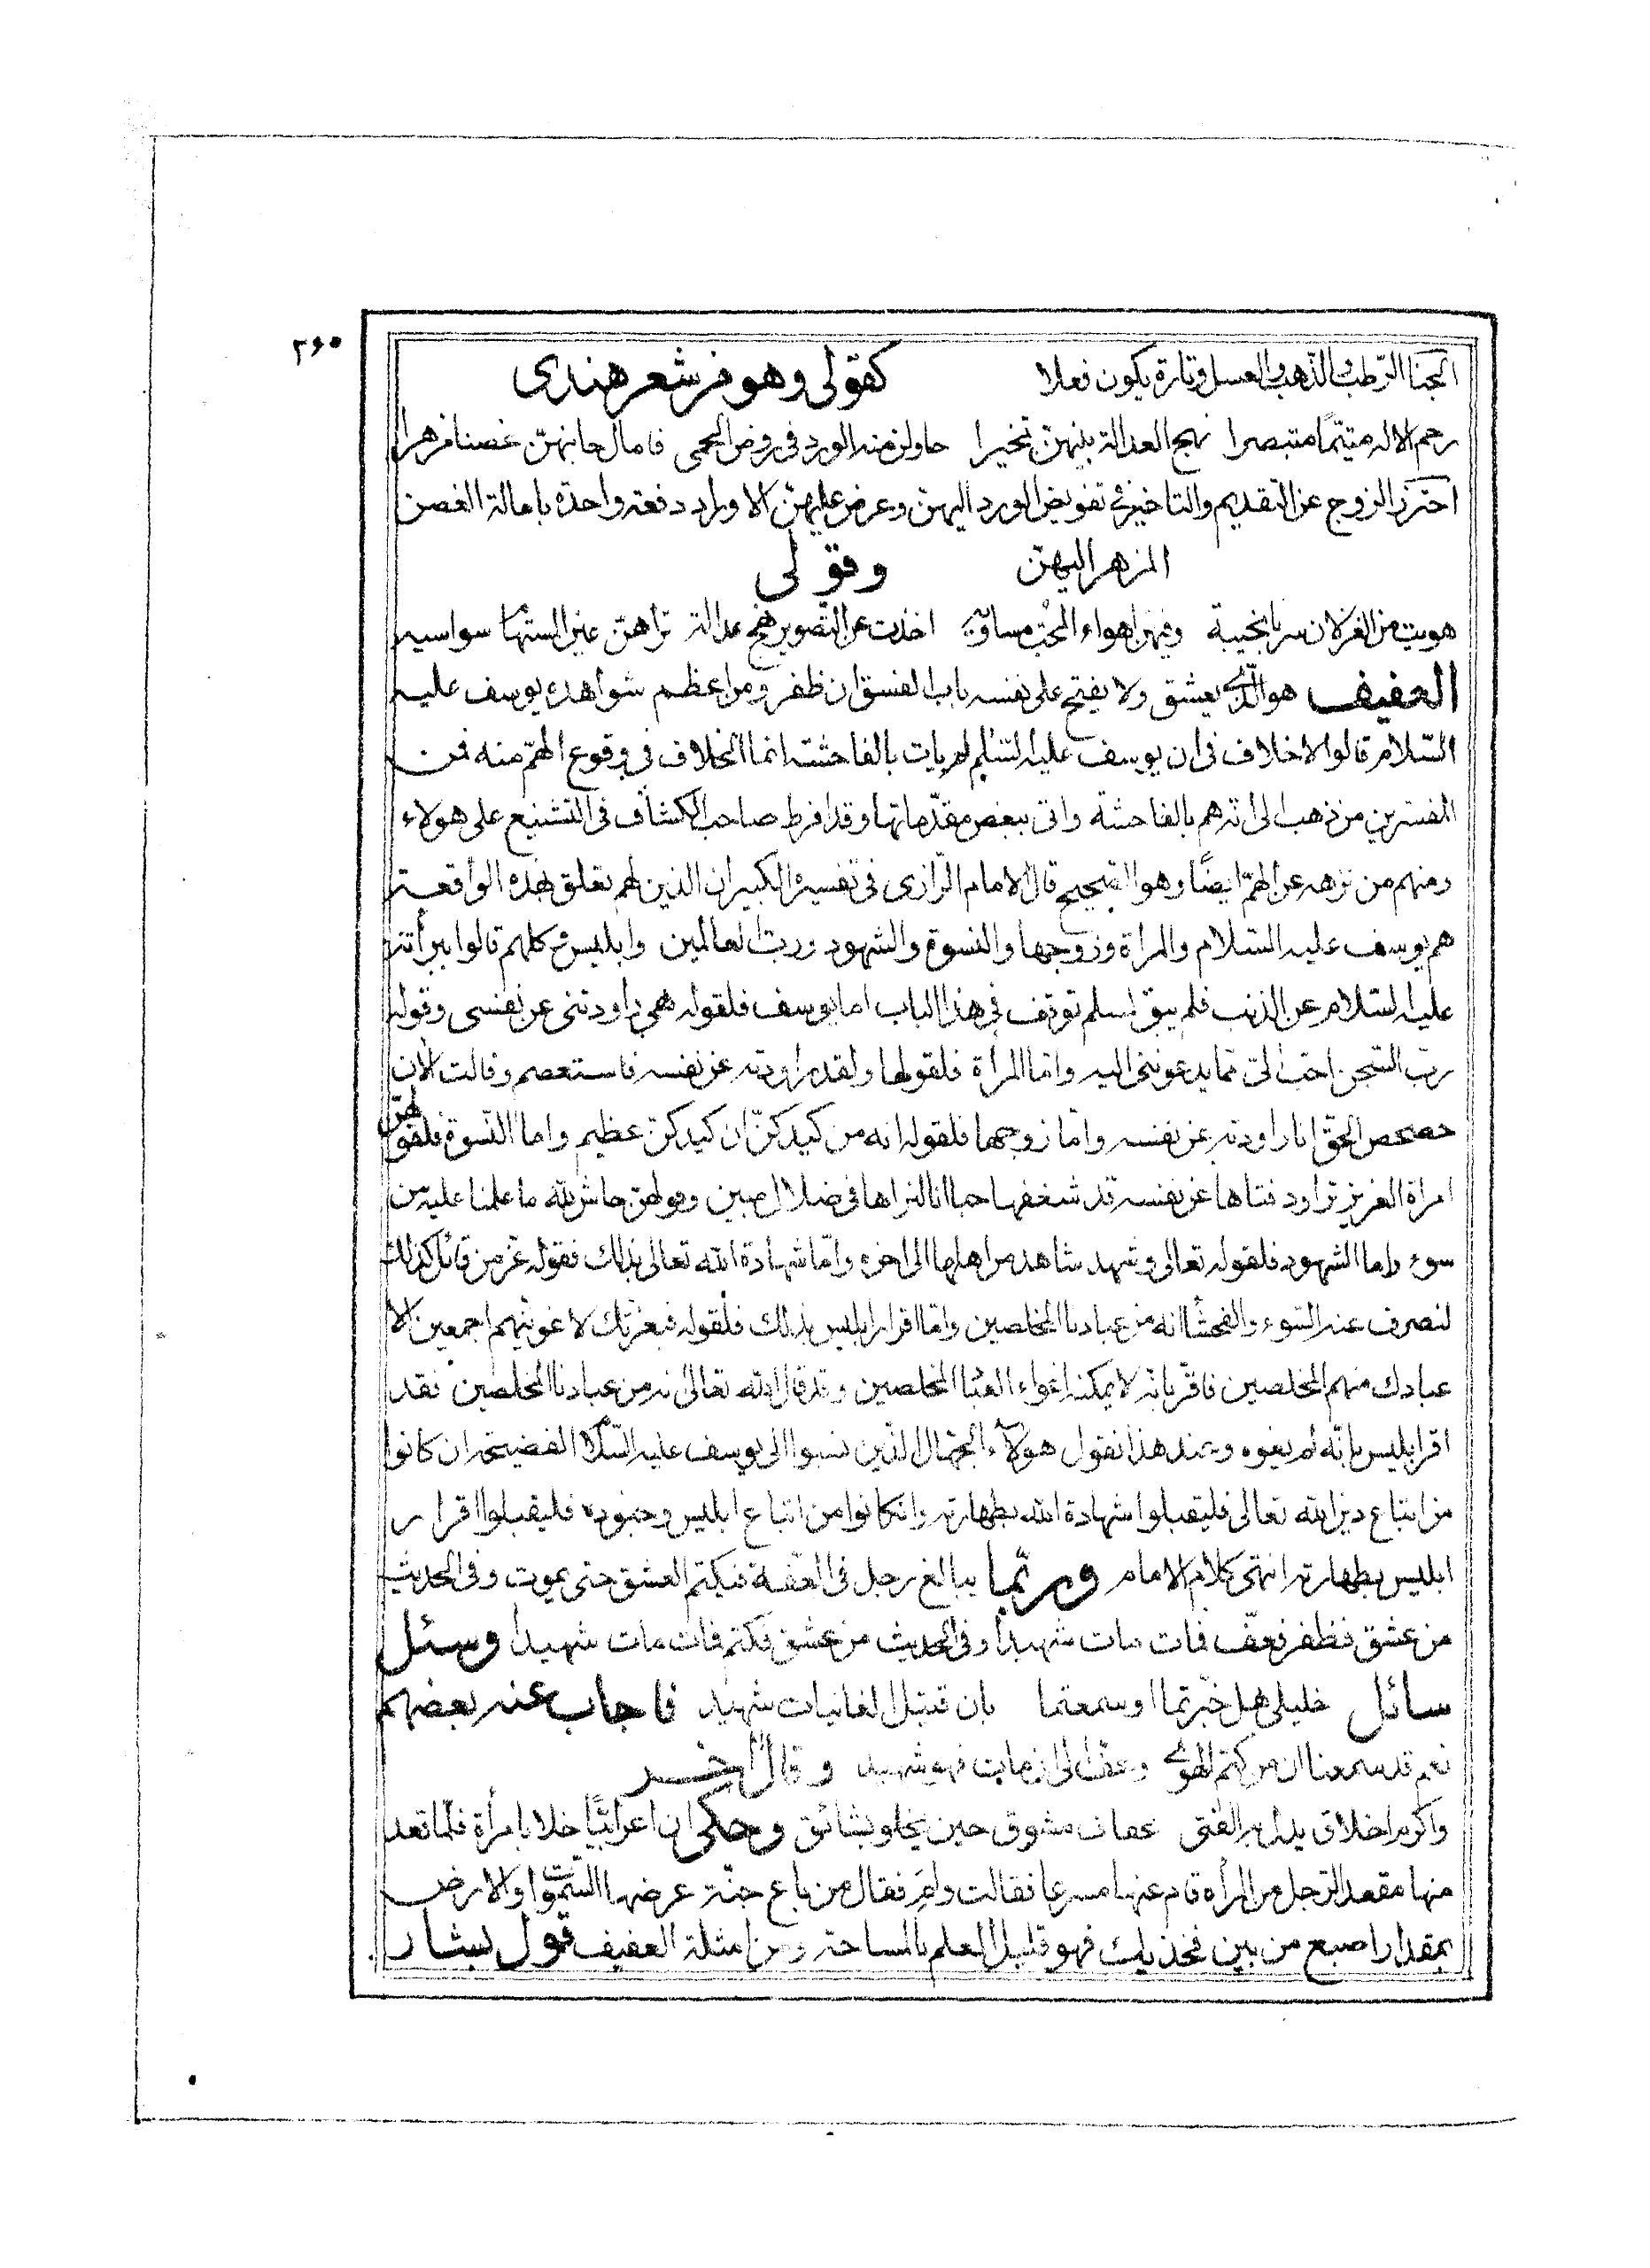 ۲۶۰
الجنا الرّطب والذّهب والعسل وتارة يكون فعلا كقولى وهو من شعر هندى
رحم الاله متيّمًا متبصرا نهج العدالة بينهنّ تخيرا حاولن منه الورد فى روض الحمى فامال جانبهنّ غصنا مزهرا
احترز الزوج عن التقديم والتاخير فى تفويض الورد اليهنّ وعرض عليهنّ الاوراد دفعة واحدة بامالة الغصن
المزهر اليهنّ وقولى
هويت من الغزلان سربا نجيبة اهواء المحبّ مساوية اخذت عن التصوير نهج عدالة تراهنّ عين المستهام سواسيه
العفيف هو الّذى يعشق ولا يفتح على نفسه باب الفسق ان ظفر ومن اعظم شواهده يوسف عليه
السّلام قالوا لا خلاف فى ان يوسف عليه التسليم لم يات بالفاحشة انما الخلاف فى وقوع الهمّ منه فمن
المفسّرين من ذهب الى انّه هم بالفاحشة واتى ببعض مقدّماتها وقد افرط صاحب الكشّاف فى التشنيع على هولاء
ومنهم من نزهه عن الهمّ ايضًا وهو الصّحيح قال الامام الرّازى فى تفسيره الكبير ان الذين لهم تعلق بهذه الواقعة
هم يوسف عليه السّلام والمراة وزوجها والنسوة والشهود وربّ العالمين وابليس وكلهم قالوا ببرأته
عليه السّلام عن الذنب فلم يبق لمسلم توقف فى هذا الباب اما يوسف فلقوله هى راودتنى عن نفسى وقوله
ربّ السّجن احبّ الىّ ممّا يدعوننى اليه وامّا المرأة فلقولها ولقد راودته عن نفسه فاستعصم وقالت الان
حصحص الحقّ انا راودته عن نفسه وامّا زوجها فلقوله انه من كيدكنّ ان كيدكنّ عظيم واما النّسوة فلقولهنّ
امراة العزيز تراود فتاها عن نفسه قد شغفها حبا انا لنراها فى ضلال مبين وقولهنّ حاش لله ما علمنا عليه من
سوء واما الشهود فلقوله تعالى وشهد شاهد من اهلها الى اخره وامّا شهادة الله تعالى بذلك فقوله عزّ من قائل كذلك
لنصرف عنه السّوء والفحشآ انه من عبادنا المخلصين وامّا اقرار ابليس بذلك فلقوله فبعزّتك لاغوينّهم اجمعين الا
عبادك منهم المخلصين فاقرّ بانّه لا يمكنه اغواء العباد المخلصين وقد قال الله تعالى انه من عبادنا المخلصين فقد
اقر ابليس بانّه لم يغوه وعند هذا نقول هولآء الجهّال الّذين نسبوا الى يوسف عليه السّلام الفضيحة ان كانوا
من اتباع دين الله تعالى فليقبلوا شهادة الله بطهارته وان كانوا من اتباع ابليس وجنوده فليقبلوا اقرار
ابليس بطهارته انتهى كلام الامام وربّما يبالغ رجل فى العفّة فيكتم العشق حتى يموت وفى الحديث
من عشق فظفر فعفّ فمات مات شهيدا وفى الحديث من عشق فكتم فمات مات شهيدا وسئل
سائل خليلىّ هل خبّرتما او سمعتما بان قتيل الغانيات شهيد فاجاب عنه بعضهم
نعم قد سمعنا ان من كتم الهوى وعفّ الى ان مات فهو شهيد وقال اخر
واكرم اخلاق يدلّ بها الفتى عفاف مشوق حين يخلو بشائق وحكى ان اعرابيًّا خلا بامرأة فلمّا قعد
منها مقعد الرّجل من المرأة قام عنها مسرعا فقالت ولم فقال من باع جنّة عرضها السّموات والارض
بمقدار اصبع من بين فخذيك فهو قليل العلم بالمساحة ومن امثلة العفيف قول بشار